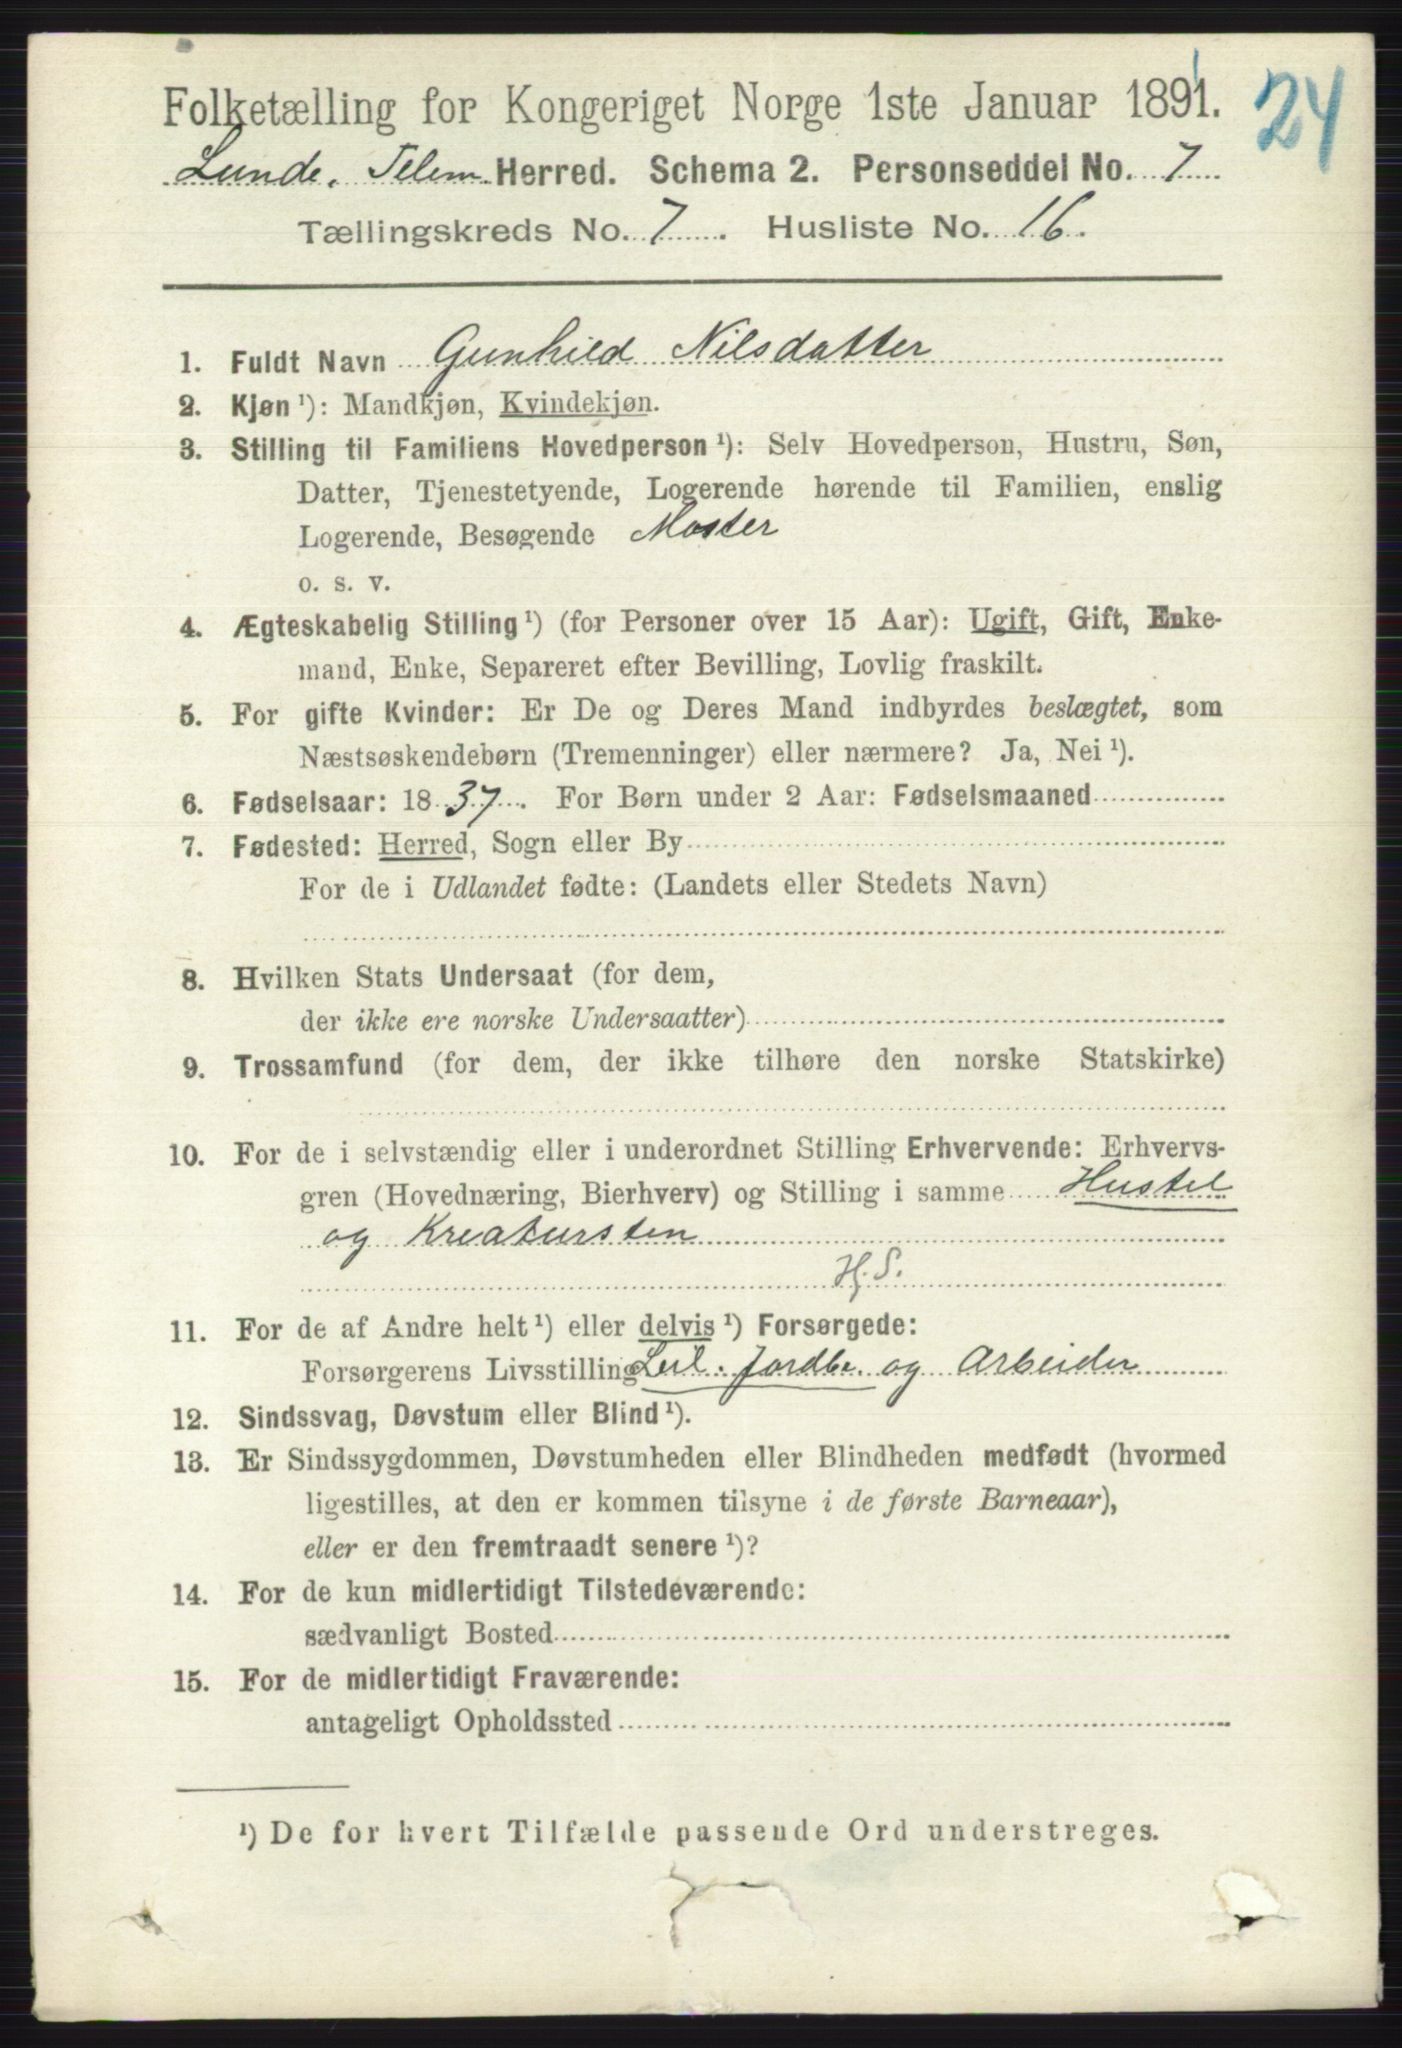 24
Folketælling for Kongeriget Norge 1ste Januar 1891.
Lunde, Telem. Herred. Schema 2. Personseddel No. 7
Tællingskreds No. 7. Husliste No. 16.
1. Fuldt Navn Gunhild Nilsdatter
2. Kjøn ¹): Mandkjøn, Kvindekjøn.
3. Stilling til Familiens Hovedperson ¹): Selv Hovedperson, Hustru, Søn,
Datter, Tjenestetyende, Logerende hørende til Familien, enslig
Logerende, Besøgende Moster
o. s. v.
4. Ægteskabelig Stilling ¹) (for Personer over 15 Aar): Ugift, Gift, Enke-
mand, Enke, Separeret efter Bevilling, Lovlig fraskilt.
5. For gifte Kvinder: Er De og Deres Mand indbyrdes beslægtet, som
Næstsøskendebørn (Tremenninger) eller nærmere? Ja, Nei ¹).
6. Fødselsaar: 1837. For Børn under 2 Aar: Fødselsmaaned
7. Fødested: Herred, Sogn eller By
For de i Udlandet fødte: (Landets eller Stedets Navn)
8. Hvilken Stats Undersaat (for dem,
der ikke ere norske Undersaatter)
9. Trossamfund (for dem, der ikke tilhøre den norske Statskirke)
10. For de i selvstændig eller i underordnet Stilling Erhvervende: Erhvervs-
gren (Hovednæring, Bierhverv) og Stilling i samme Hustel
og Kreatursten
H.S.
11. For de af Andre helt ¹) eller delvis ¹) Forsørgede:
Forsørgerens Livsstilling Leil. Jordbr. og Arbeider
12. Sindssvag, Døvstum eller Blind ¹).
13. Er Sindssygdommen, Døvstumheden eller Blindheden medfødt (hvormed
ligestilles, at den er kommen tilsyne i de første Barneaar),
eller er den fremtraadt senere ¹)?
14. For de kun midlertidigt Tilstedeværende:
sædvanligt Bosted
15. For de midlertidigt Fraværende:
antageligt Opholdssted
¹) De for hvert Tilfælde passende Ord understreges.